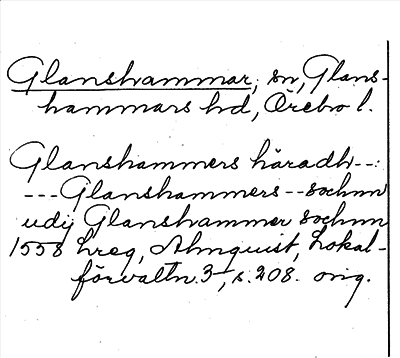 Glanshammar, sn, Glans-
hammars hd, Örebro l.
Glanshammers häradh--:
---Glanshammers--sochnn
udij Glanshammer sochnn
1558 hreg, Almquist, Lokal-
förvaltn. 3, s. 208. orig.